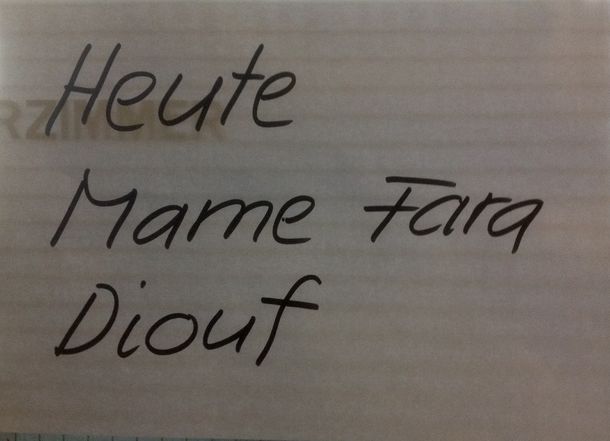 Heute
RZIMMER
Mame Fara
Diouf